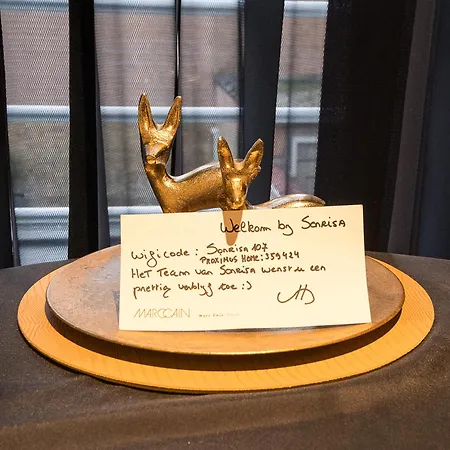 Welkom by Sonrisa
Wifi code : Sonrisa 107
PROXIMUS Home: 359424
Het Team van Sonrisa wenst u een
prettig verblijf toe :)
MARCCAIN